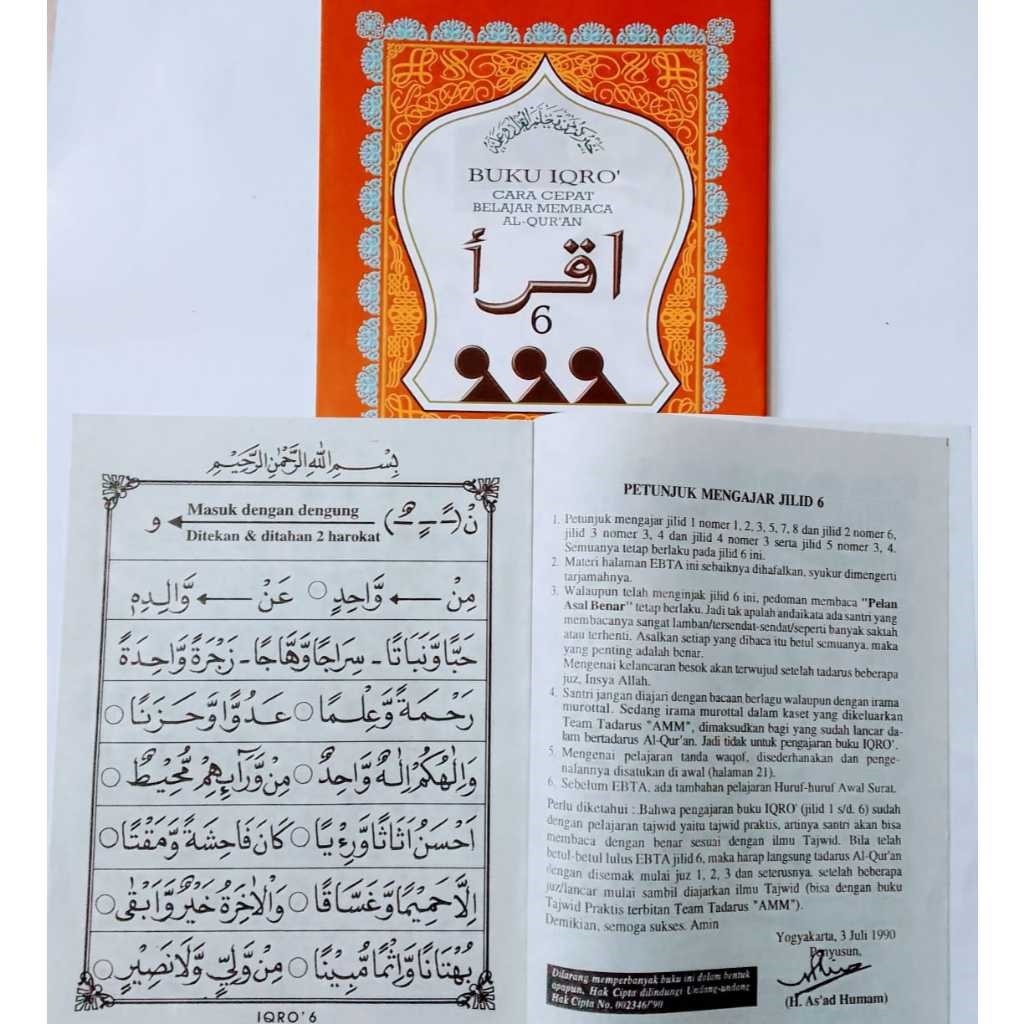 خيركم من تعلم القرآن وعلمه
BUKU IQRO'
CARA CEPAT
BELAJAR MEMBACA
AL-QUR'AN
اقرأ
6
بِسْمِ اللهِ الرَّحْمٰنِ الرَّحِيْمِ
نْ (ـًـ ـٍـ ـٌـ) Masuk dengan dengung و
Ditekan & ditahan 2 harokat
مِنْ ← وَّاحِدٍ ○ عَنْ ← وَّالِدِهٖ
حَبًّا وَّنَبَاتًا - سِرَاجًا وَّهَّاجًا - زَجْرَةٌ وَّاحِدَةٌ
رَحْمَةً وَّعِلْمًا ○ عَدُوًّا وَّحَزَنًا ○
وَاِلٰهُكُمْ اِلٰهٌ وَّاحِدٌ ○ مِنْ وَّرَآىِٕهِمْ مُّحِيْطٌ ○
اَحْسَنُ اَثَاثًا وَّرِءْيًا ○ كَانَ فَاحِشَةً وَّمَقْتًا ○
اِلَّا حَمِيْمًا وَّغَسَّاقًا ○ وَالْاٰخِرَةُ خَيْرٌ وَّاَبْقٰى ○
بُهْتَانًا وَّاِثْمًا مُّبِيْنًا ○ مِنْ وَّلِيٍّ وَّلَا نَصِيْرٍ ○
IQRO' 6
PETUNJUK MENGAJAR JILID 6
1. Petunjuk mengajar jilid 1 nomer 1, 2, 3, 5, 7, 8 dan jilid 2 nomer 6,
jilid 3 nomer 3, 4 dan jilid 4 nomer 3 serta jilid 5 nomer 3, 4.
Semuanya tetap berlaku pada jilid 6 ini.
2. Materi halaman EBTA ini sebaiknya dihafalkan, syukur dimengerti
tarjamahnya.
3. Walaupun telah menginjak jilid 6 ini, pedoman membaca "Pelan
Asal Benar" tetap berlaku. Jadi tak apalah andaikata ada santri yang
membacanya sangat lamban/tersendat-sendat/seperti banyak saktah
atau terhenti. Asalkan setiap yang dibaca itu betul semuanya, maka
yang penting adalah benar.
Mengenai kelancaran besok akan terwujud setelah tadarus beberapa
juz, Insya Allah.
4. Santri jangan diajari dengan bacaan berlagu walaupun dengan irama
murottal. Sedang irama murottal dalam kaset yang dikeluarkan
Team Tadarus "AMM", dimaksudkan bagi yang sudah lancar da-
lam bertadarus Al-Qur'an. Jadi tidak untuk pengajaran buku IQRO'.
5. Mengenai pelajaran tanda waqof, disederhanakan dan penge-
nalannya disatukan di awal (halaman 21).
6. Sebelum EBTA, ada tambahan pelajaran Huruf-huruf Awal Surat.
Perlu diketahui : Bahwa pengajaran buku IQRO' (jilid 1 s/d. 6) sudah
dengan pelajaran tajwid yaitu tajwid praktis, artinya santri akan bisa
membaca dengan benar sesuai dengan ilmu Tajwid. Bila telah
betul-betul lulus EBTA jilid 6, maka harap langsung tadarus Al-Qur'an
dengan disemak mulai juz 1, 2, 3 dan seterusnya. setelah beberapa
juz/lancar mulai sambil diajarkan ilmu Tajwid (bisa dengan buku
Tajwid Praktis terbitan Team Tadarus "AMM").
Demikian, semoga sukses. Amin
Yogyakarta, 3 Juli 1990
Penyusun,
(H. As'ad Humam)
Dilarang memperbanyak buku ini dalam bentuk
apapun. Hak Cipta dilindungi Undang-undang
Hak Cipta No. 002346/'90